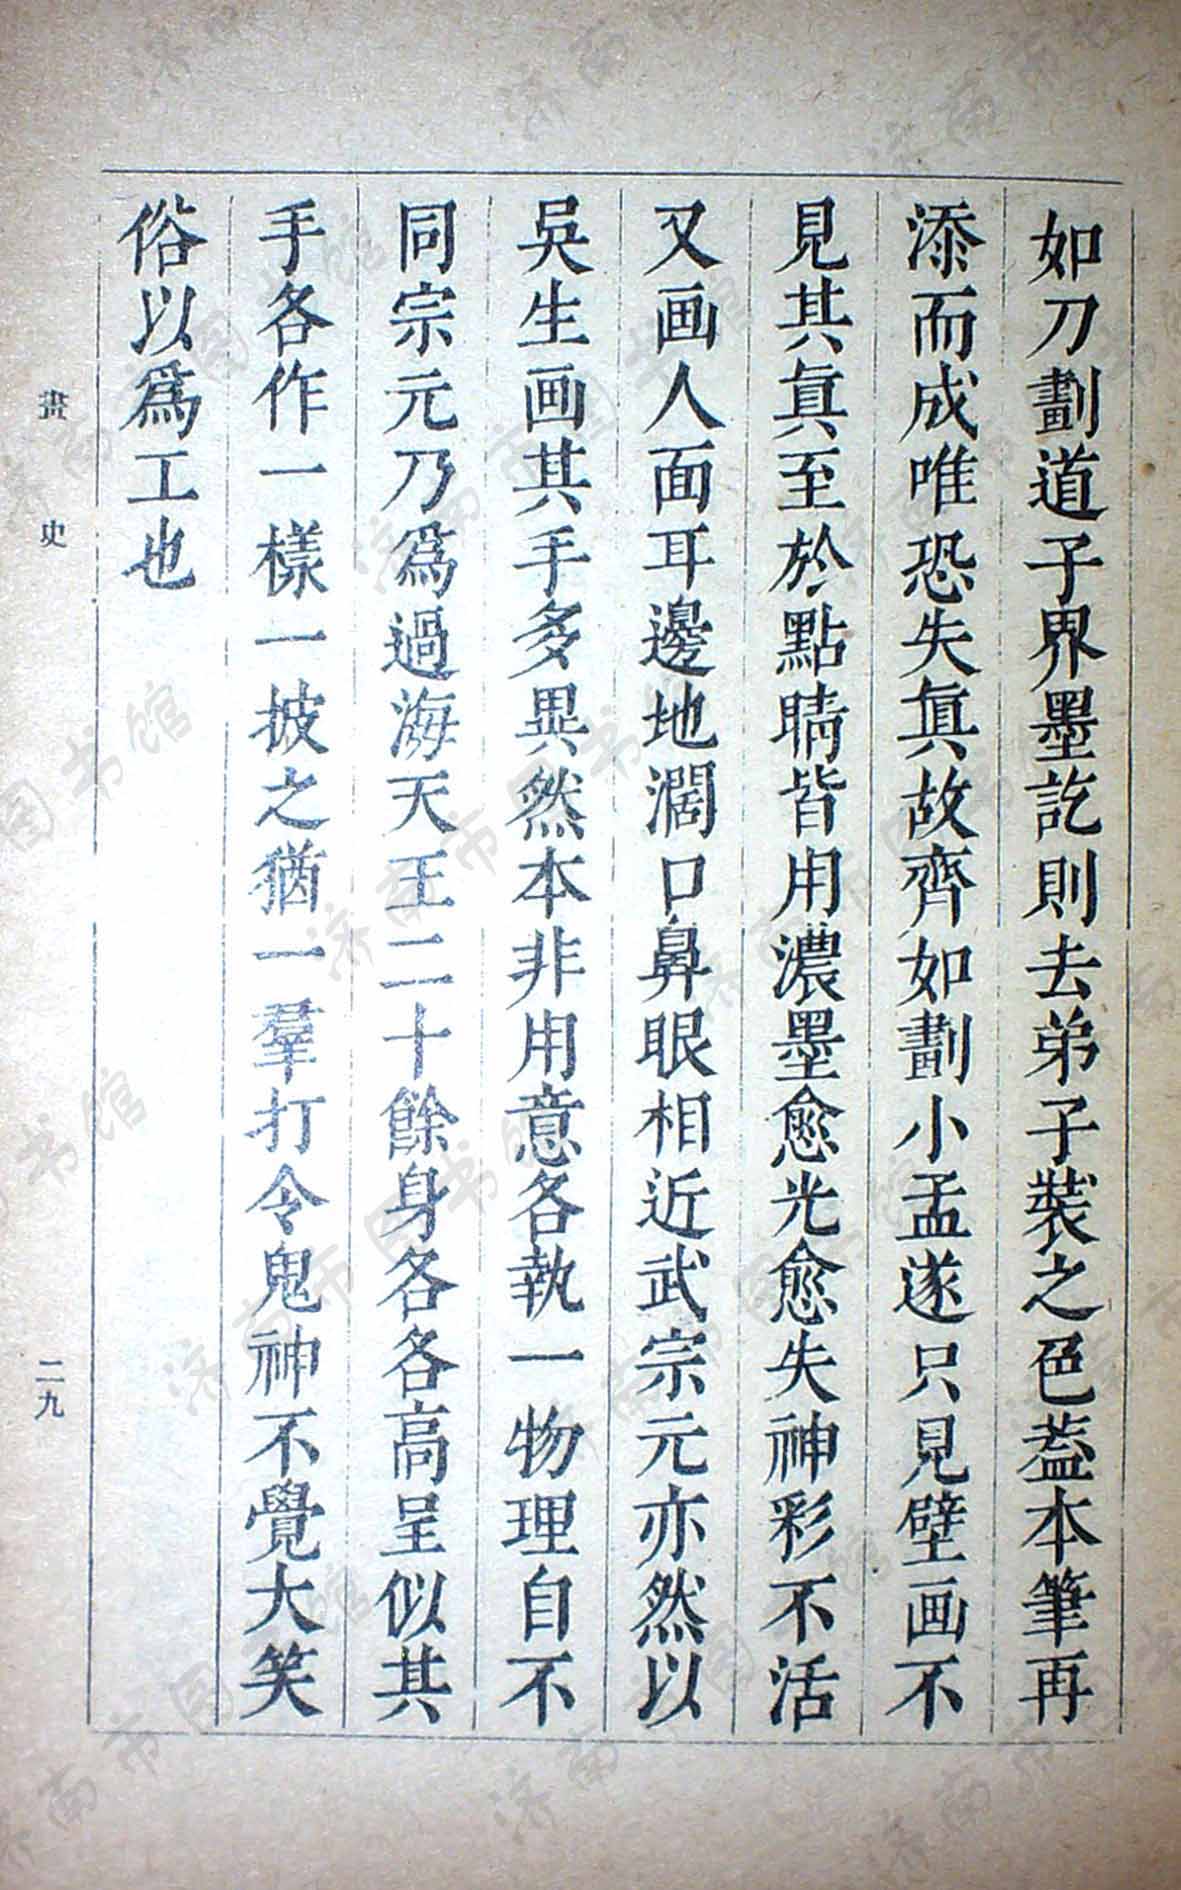 如刀劃道子界墨訖則去弟子裝之色葢本筆再
添而成唯恐失眞故齊如劃小孟遂只見壁画不
見其眞至於點睛皆用濃墨愈光愈失神彩不活
又画人面耳邊地濶口鼻眼相近武宗元亦然以
吳生画其手多異然本非用意各執一物理自不
同宗元乃爲過海天王二十餘身各各高呈似其
手各作一樣一披之猶一羣打令鬼神不覺大笑
俗以爲工也
畫史
二九
济南市图书馆